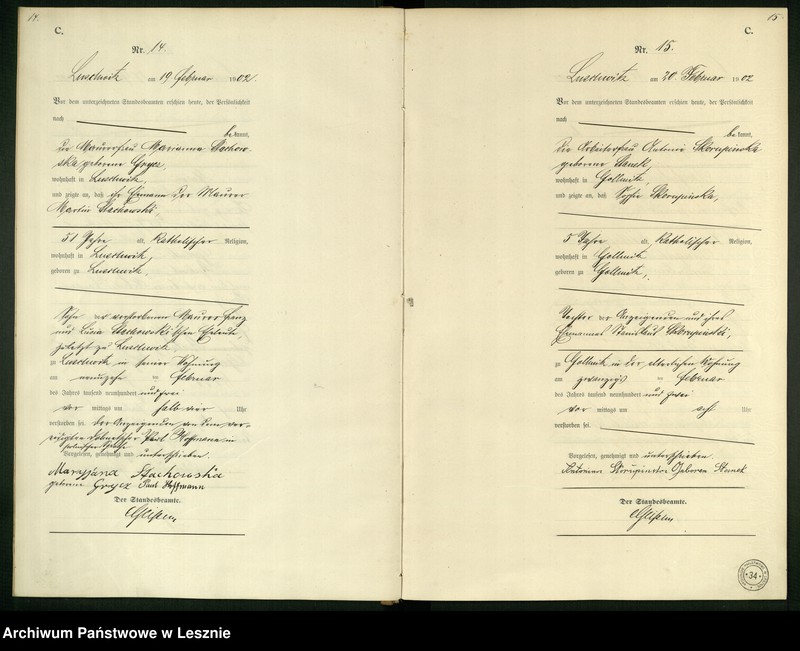 14.
C.
Nr. 14.
Luschwitz am 19 Februar 1902.
Vor dem unterzeichneten Standesbeamten erschien heute, der Persönlichkeit
nach
bekannt,
die Maurerfrau Marianna Stachow-
ska geborene
wohnhaft in Luschwitz,
und zeigte an, daß ihr Ehemann der Maurer
Martin Stachowski,
51 Jahre alt, Katholischer Religion,
wohnhaft in Luschwitz,
geboren zu Luschwitz,
Sohn der verstorbenen Maurer Franz
und Lucia Stachowski'schen Eheleute,
zuletzt zu Luschwitz
zu Luschwitz in seiner Wohnung
am neunzehn ten Februar
des Jahres tausend neunhundert und zwei
vor mittags um halb vier Uhr
verstorben sei. Der Anzeigenden von dem ver-
eidigten Dolmetscher Paul Hoffmann in
polnischer Sprache
Vorgelesen, genehmigt und unterschrieben.
Maryjanna Stachowska
geborene Paul Hoffmann
Der Standesbeamte.
15.
C.
Nr. 15.
Luschwitz am 20 Februar 1902
Vor dem unterzeichneten Standesbeamten erschien heute, der Persönlichkeit
nach
bekannt,
die Arbeiterfrau Antonie Skorupinska
geborene Stanek
wohnhaft in Gollmitz,
und zeigte an, daß Sofie Skorupinska,
5 Jahre alt, Katholischer Religion,
wohnhaft in Gollmitz
geboren zu Gollmitz,
Tochter der Anzeigenden und ihres
Ehemannes Stanislaus Skorupinski,
zu Gollmitz in der elterlichen Wohnung
am zwanzigs ten Februar
des Jahres tausend neunhundert und zwei
vor mittags um acht Uhr
verstorben sei.
Vorgelesen, genehmigt und unterschrieben.
Antonina Skorupinska Geboren Stanek
Der Standesbeamte.
34
Archiwum Państwowe w Lesznie